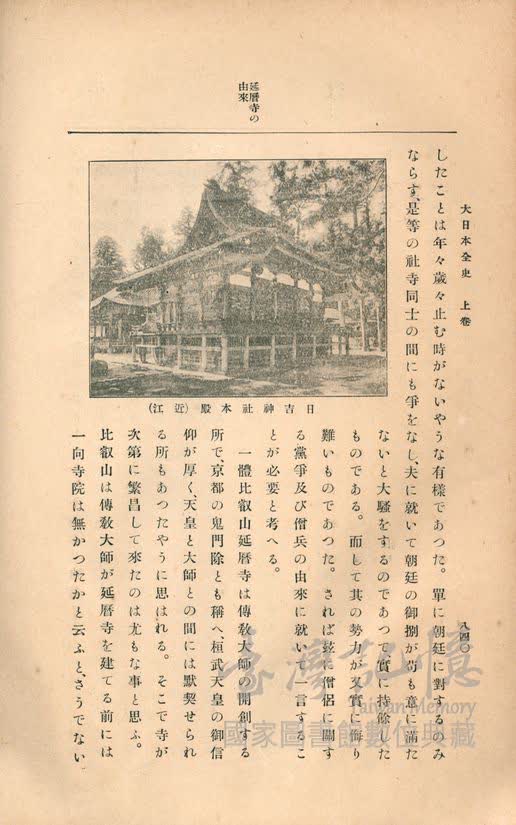 大日本全史　上卷
八四〇
延曆寺の
由來
したことは年々歲々止む時がないやうな有樣であつた。單に朝廷に對するのみ
ならず、是等の社寺同士の間にも爭をなし、夫に就いて朝廷の御捌が苟も意に滿た
ないと大騷をするのであつて實に持餘した
ものである。而して其の勢力が又實に侮り
難いものであつた。されば玆に僧侶に關す
る黨爭及び僧兵の由來に就いて一言するこ
とが必要と考へる。
一體比叡山延曆寺は傳敎大師の開創する
所で、京都の鬼門除とも稱へ、桓武天皇の御信
仰が厚く、天皇と大師との間には默契せられ
る所もあつたやうに思はれる。そこで寺が
次第に繁昌して來たのは尤もな事と思ふ。
比叡山は傳敎大師が延曆寺を建てる前には
一向寺院は無かつたかと云ふと、さうでない
日吉神社本殿（近江）
臺灣記憶
Taiwan Memory
國家圖書館數位典藏